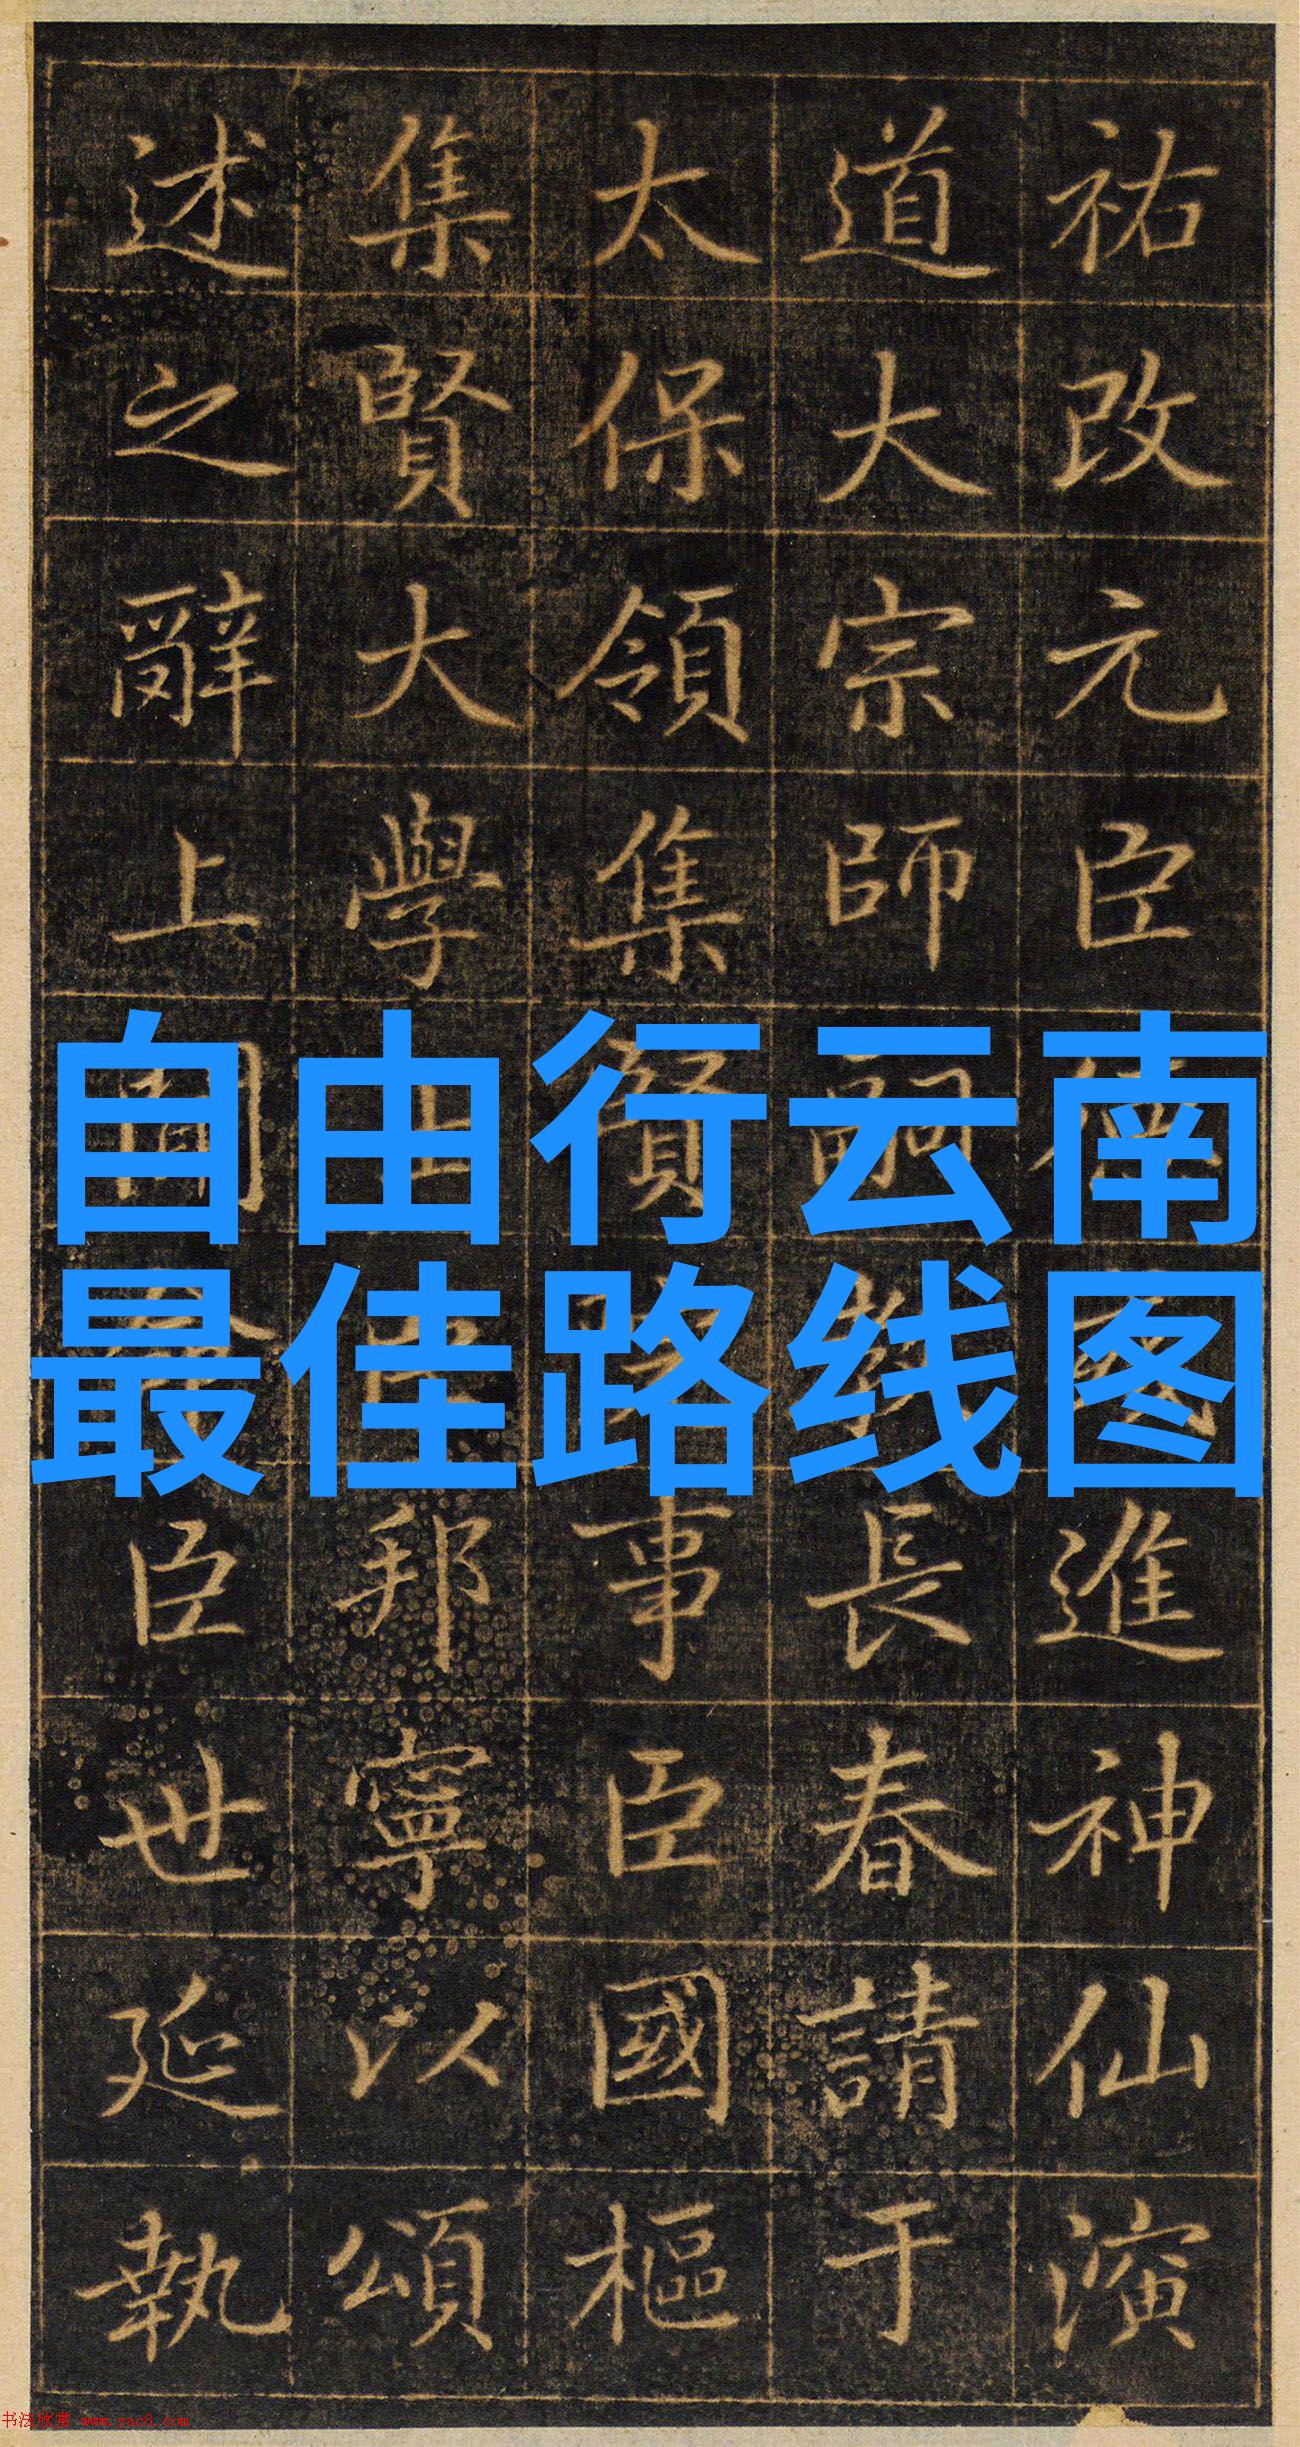 祐改元臣進神仙演
道大宗師嗣長春請于
太保領集賢事臣國樞
集賢大學士邦寧以頌
述之辭上聞臣世延執
自由行云南
最佳路线图
书法欣赏 www.yac8.com